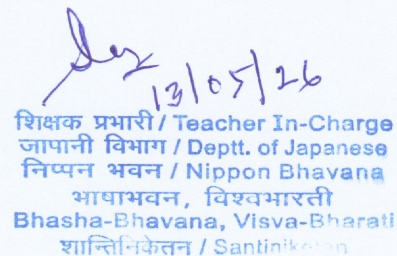 13/05/26
शिक्षक प्रभारी / Teacher In-Charge
जापानी विभाग / Deptt. of Japanese
निप्पन भवन / Nippon Bhavana
भाषाभवन, विश्वभारती
Bhasha-Bhavana, Visva-Bharati
शान्तिनिकेतन / Santiniketan